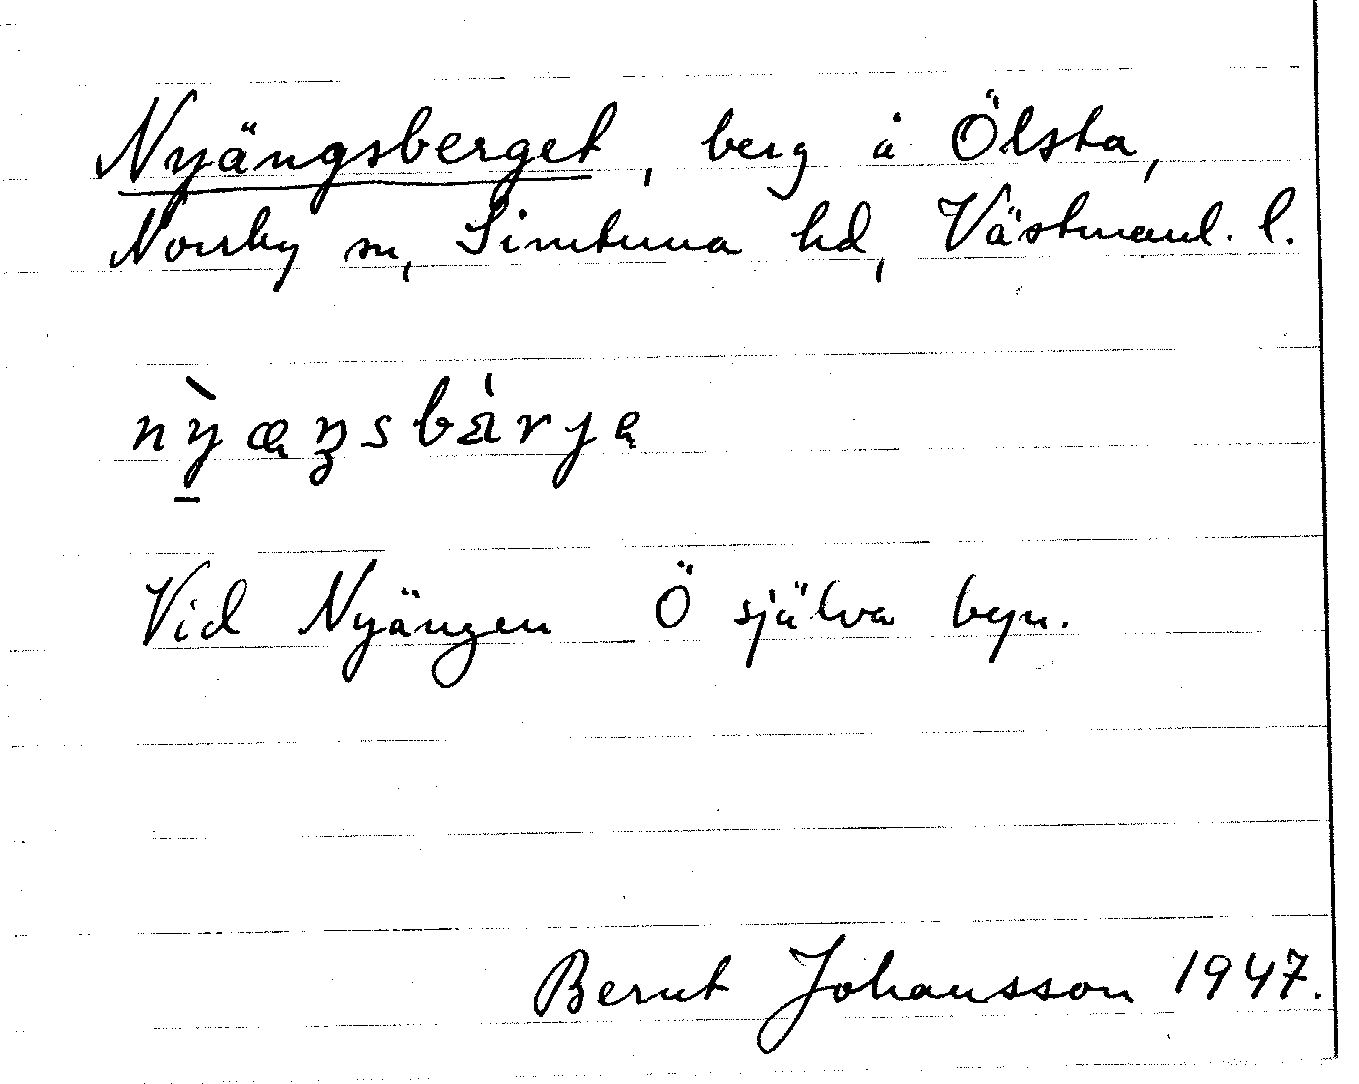 Nyängsberget, berg å Ölsta,
Norrby sn, Simtuna hd, Västmanl. l.
nỳæŋsbàrję
Vid Nyängen Ö själva byn.
Bernt Johansson 1947.